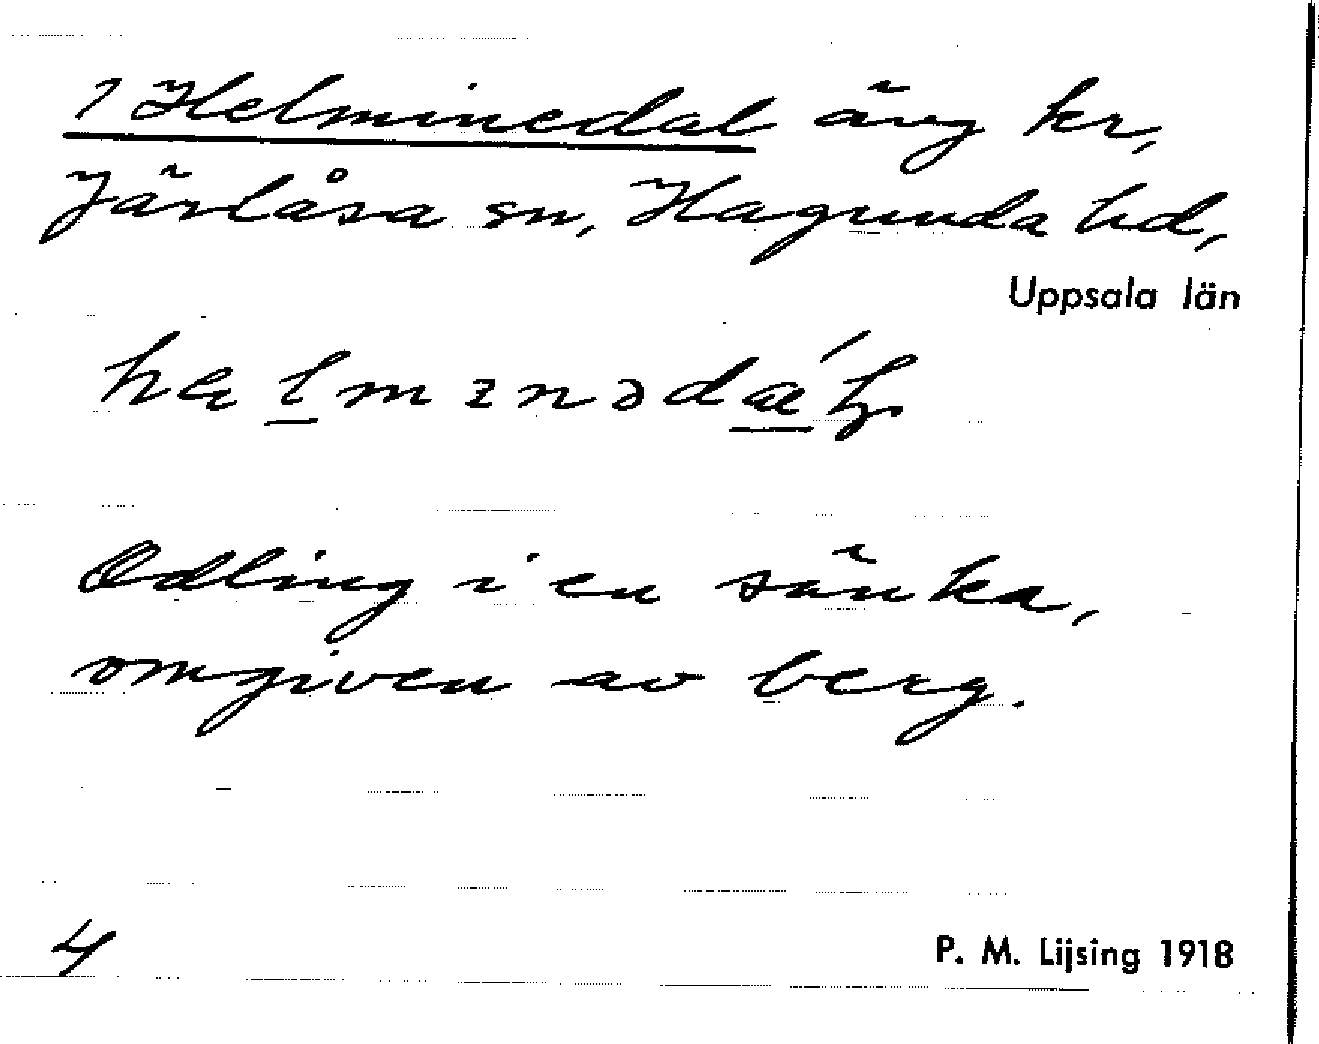 ? Helminedal äng kr,
Järlåsa sn, Hagunda hd,
Uppsala län
Odling i en sänka,
omgiven av berg.
4
P. M. Lijsing 1918